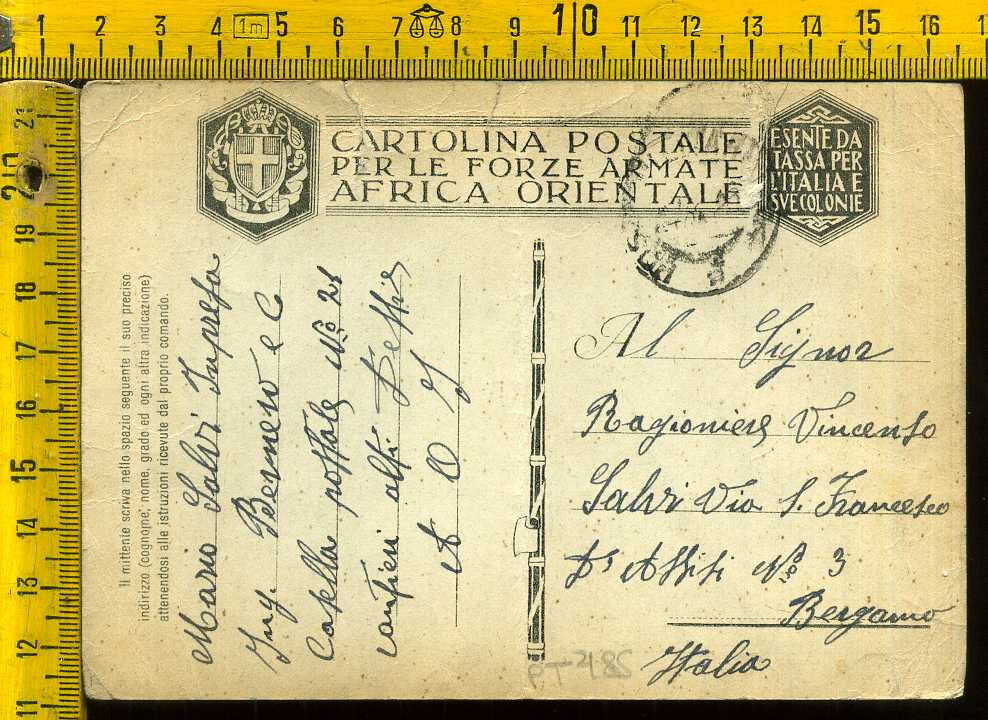 CARTOLINA POSTALE
PER LE FORZE ARMATE
AFRICA ORIENTALE
ESENTE DA
TASSA PER
L'ITALIA E
SVE COLONIE
Il mittente scriva nello spazio seguente il suo preciso
indirizzo (cognome, nome, grado ed ogni altra indicazione)
attenendosi alle istruzioni ricevute dal proprio comando.
Mario Salvi Impresa
Ing. e C
Casella postale No 21
cantieri alti
A O I
Al Signor
Ragioniere Vincenso
Salvi Via S. Francesco
D' Assisi No 3
Bergamo
Italia
1 2 3 4 1m 5 6 7 8 9 10 11 12 13 14 15 16
21
20
19
18
17
16
15
14
13
12
11